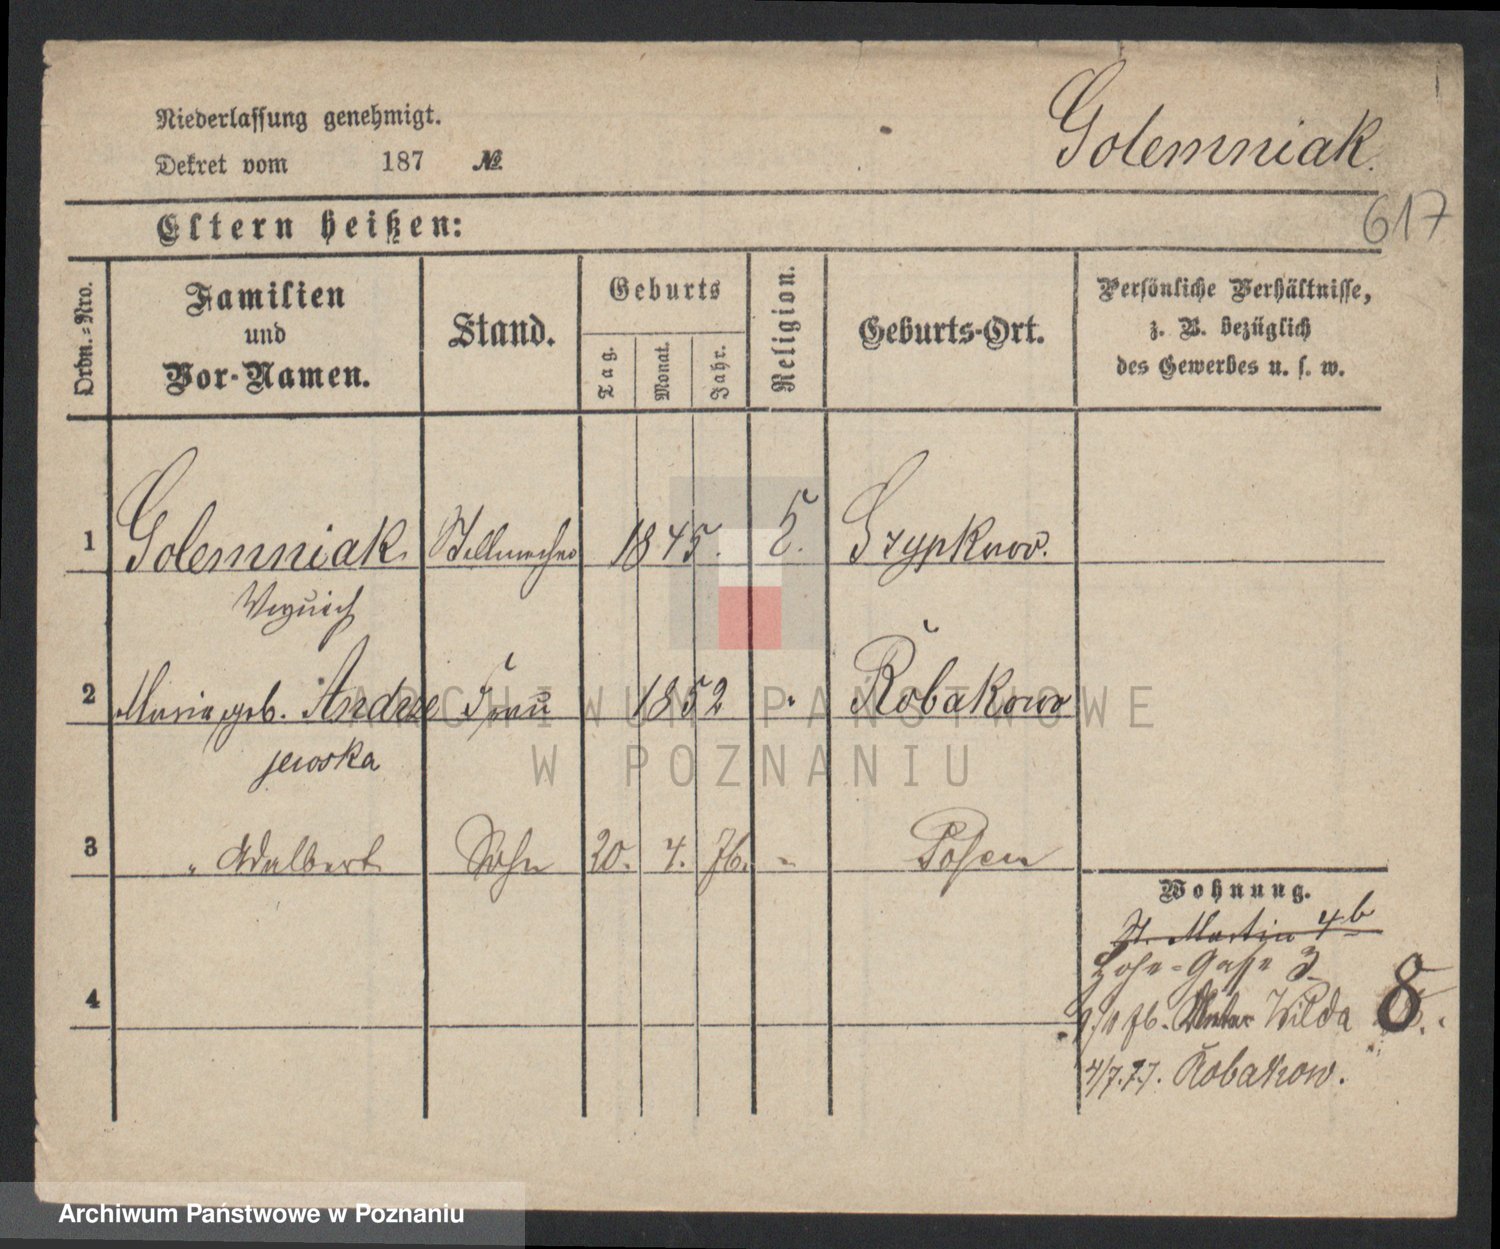 Niederlassung genehmigt.
Golemniak.
Dekret vom 187 №
617
Eltern heißen:
Ordn.-Nro.
Familien
und
Vor-Namen.
Stand.
Geburts
Tag.
Monat.
Jahr.
Religion.
Geburts-Ort.
Persönliche Verhältnisse,
z. B. bezüglich
des Gewerbes u. s. w.
1 Golemniak Stellmacher 1845.
2 Maria geb. Andrze Frau 1852 Robakowo
jewska
3 " Adalbert Sohn 20. 4. 76. " Posen
Wohnung.
St. Martin 4b
Gasse 3
76. Unter Wilda 8
4/7. 77. Robakow.
4
ARCHIWUM PAŃSTWOWE
W POZNANIU
Archiwum Państwowe w Poznaniu